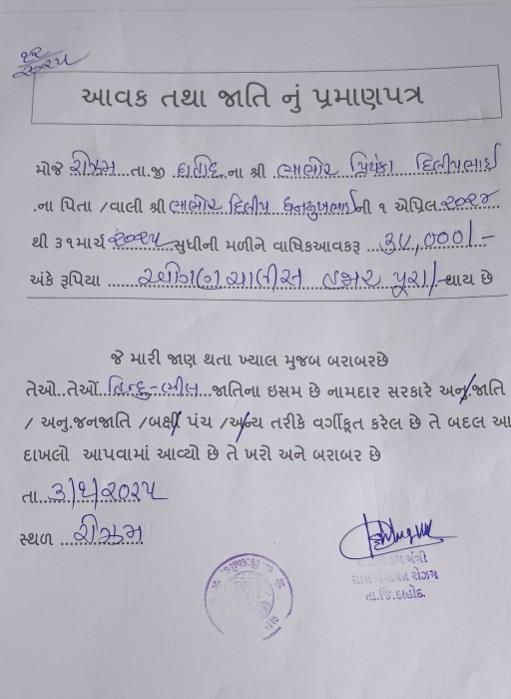 ૧૨
૨૦૨૫
આવક તથા જાતિ નું પ્રમાણપત્ર
મોજે રોઝમ તા.જી દાહોદ ના શ્રી ભાભોર પ્રિયંકા દિલીપભાઈ
ના પિતા /વાલી શ્રી ભાભોર દિલીપ ધનસુખભાઈની ૧ એપ્રિલ ૨૦૨૪
થી ૩૧માર્ચ ૨૦૨૫ સુધીની મળીને વાષિકઆવકરૂ
અંકે રૂપિયા હજાર પૂરા/- થાય છે
જે મારી જાણ થતા ખ્યાલ મુજબ બરાબરછે
તેઓ..તેઓં હિન્દુ-ભીલ જાતિના ઇસમ છે નામદાર સરકારે અનુ.જાતિ
/ અનુ.જનજાતિ /બક્ષી પંચ /અન્ય તરીકે વર્ગીકૃત કરેલ છે તે બદલ આ
દાખલો આપવામાં આવ્યો છે તે ખરો અને બરાબર છે
તા...૩/૫/૨૦૨૫
સ્થળ રોઝમ
મંત્રી
ગ્રામ પંચાયત રોઝમ
તા.જિ.દાહોદ